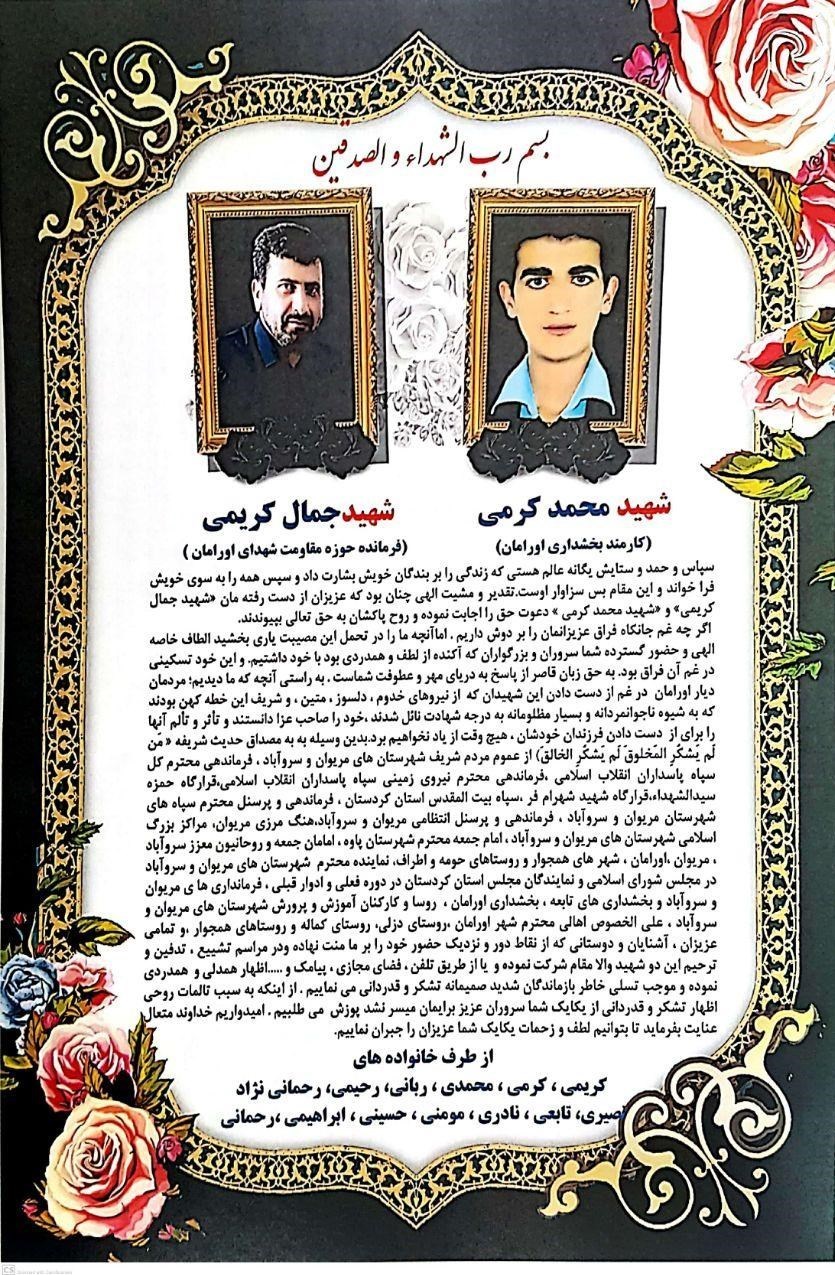 بسم رب الشهداء و الصدقین
شهید محمد کرمی
(کارمند بخشداری اورامان)
شهید جمال کریمی
(فرمانده حوزه مقاومت شهدای اورامان )
سپاس و حمد و ستایش یگانه عالم هستی که زندگی را بر بندگان خویش بشارت داد و سپس همه را به سوی خویش
فرا خواند و این مقام بس سزاوار اوست.تقدیر و مشیت الهی چنان بود که عزیزان از دست رفته مان «شهید جمال
کریمی» و «شهید محمد کرمی » دعوت حق را اجابت نموده و روح پاکشان به حق تعالی بپیوندند.
اگر چه غم جانکاه فراق عزیزانمان را بر دوش داریم . اماآنچه ما را در تحمل این مصیبت یاری بخشید الطاف خاصه
الهی و حضور گسترده شما سروران و بزرگواران که آکنده از لطف و همدردی بود با خود داشتیم. و این خود تسکینی
در غم آن فراق بود. به حق زبان قاصر از پاسخ به دریای مهر و عطوفت شماست . به راستی آنچه که ما دیدیم؛ مردمان
دیار اورامان در غم از دست دادن این شهیدان که از نیروهای خدوم ، دلسوز ، متین ، و شریف این خطه کهن بودند
که به شیوه ناجوانمردانه و بسیار مظلومانه به درجه شهادت نائل شدند ،خود را صاحب عزا دانستند و تأثر و تألم آنها
را برای از دست دادن فرزندان خودشان ، هیچ وقت از یاد نخواهیم برد.بدین وسیله به به مصداق حدیث شریفه « مَن
لَم یَشکُرِ المَخلوقَ لَم یَشکُرِ الخالقَ) از عموم مردم شریف شهرستان های مریوان و سروآباد ، فرماندهی محترم کل
سپاه پاسداران انقلاب اسلامی ،فرماندهی محترم نیروی زمینی سپاه پاسداران انقلاب اسلامی،قرارگاه حمزه
سیدالشهداء،قرارگاه شهید شهرام فر ،سپاه بیت المقدس استان کردستان ، فرماندهی و پرسنل محترم سپاه های
شهرستان مریوان و سروآباد ، فرماندهی و پرسنل انتظامی مریوان و سروآباد،هنگ مرزی مریوان، مراکز بزرگ
اسلامی شهرستان های مریوان و سروآباد ، امام جمعه محترم شهرستان پاوه ، امامان جمعه و روحانیون معزز سروآباد
، مریوان ،اورامان ، شهر های همجوار و روستاهای حومه و اطراف، نماینده محترم شهرستان های مریوان و سروآباد
در مجلس شورای اسلامی و نمایندگان مجلس استان کردستان در دوره فعلی و ادوار قبلی ، فرمانداری ها ی مریوان
و سروآباد و بخشداری های تابعه ، بخشداری اورامان ، روسا و کارکنان آموزش و پرورش شهرستان های مریوان و
سروآباد ، علی الخصوص اهالی محترم شهر اورامان ،روستای دزلی، روستای کماله و روستاهای همجوار ،و تمامی
عزیزان ، آشنایان و دوستانی که از نقاط دور و نزدیک حضور خود را بر ما منت نهاده ودر مراسم تشییع ، تدفین و
ترحیم این دو شهید والا مقام شرکت نموده و یا از طریق تلفن ، فضای مجازی ، پیامک و .....اظهار همدلی و همدردی
نموده و موجب تسلی خاطر بازماندگان شدید صمیمانه تشکر و قدردانی می نماییم . از اینکه به سبب تالمات روحی
اظهار تشکر و قدردانی از یکایک شما سروران عزیز برایمان میسر نشد پوزش می طلبیم . امیدواریم خداوند متعال
عنایت بفرماید تا بتوانیم لطف و زحمات یکایک شما عزیزان را جبران نماییم.
از طرف خانواده های
کریمی ، کرمی ، محمدی ، ربانی، رحیمی، رحمانی نژاد
نصیری، تابعی ، نادری ، مومنی ، حسینی ، ابراهیمی ،رحمانی
CS Scanned with CamScanner